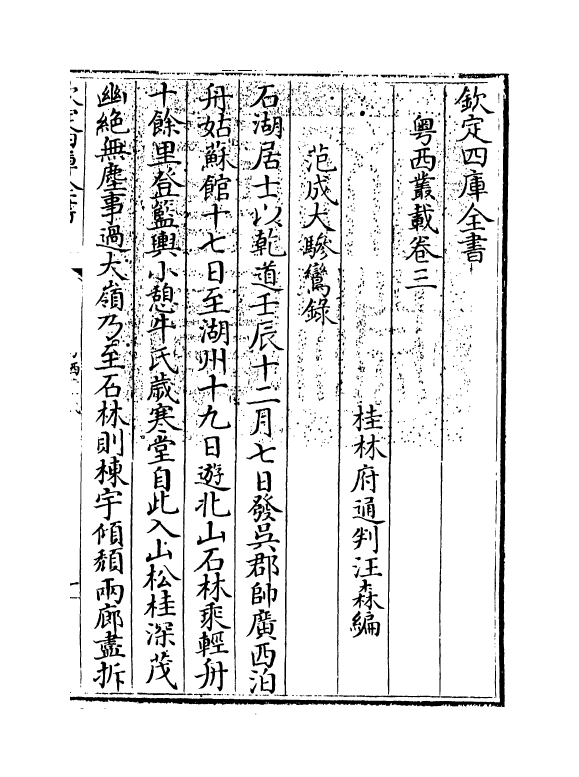 欽定四庫全書
粤西叢載卷三
桂林府通判汪森編
范成大驂鸞錄
石湖居士以乾道壬辰十二月七日發吳郡帥廣西泊
舟姑蘇館十七日至湖州十九日遊北山石林乘輕舟
十餘里登籃輿小憩牛氏歲寒堂自此入山松桂深茂
幽絶無塵事過大嶺乃至石林則棟宇傾頹兩廊盡拆